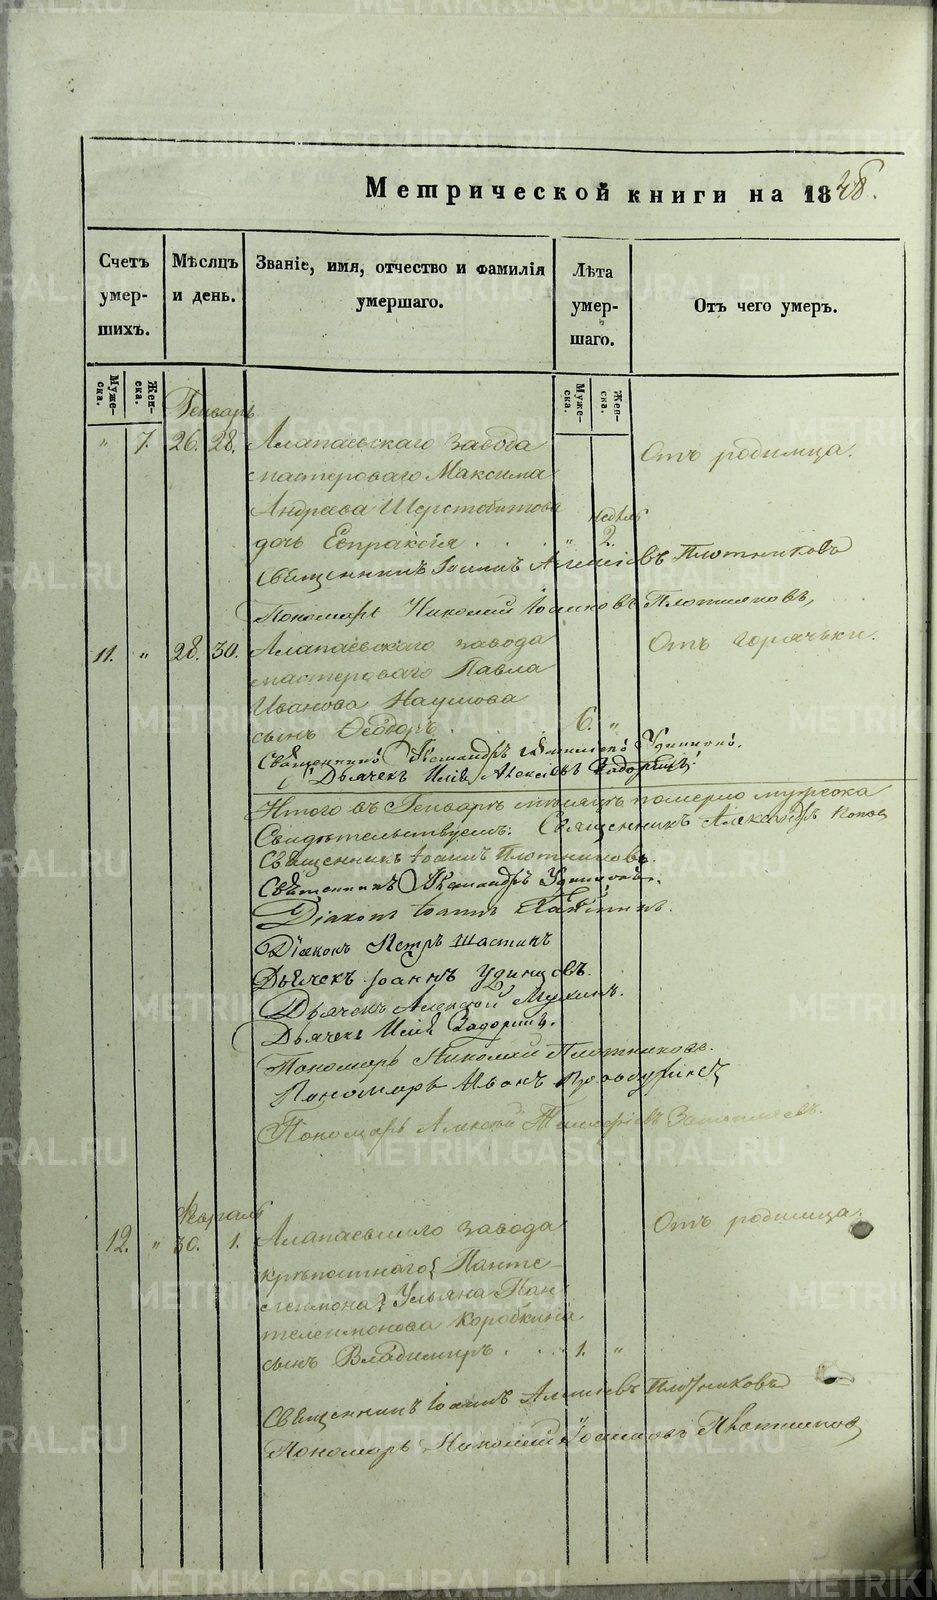 Метрической книги на 1848.
Счетъ умер- шихъ.
Мѣсяцъ и день.
Званіе, имя, отчество и фамилія умершаго.
Лѣта умер- шаго.
Отъ чего умеръ.
Муже- ска.
Жен- ска.
Муже- ска.
Жен- ска.
Генварь
" 7. 26. 28. Алапаевскаго завода
Отъ родимца.
мастероваго Максима
Андреева Шерстобитова
недѣль
дочь Евпраксія . . . " 2.
Священникъ Іоаннъ Алексіевъ Плотниковъ
Пономарь Николай Іоанновъ Плотниковъ.
11. " 28. 30. Алапаевскаго завода
Отъ горячьки.
мастероваго Павла
Иванова Наумова
сынъ Ѳеодоръ . . 6. "
Священникъ Александръ Удинцовъ.
Дьячекъ Илія Алексіевъ Задоринъ.
Итого въ Генварѣ мѣсяцѣ померло мужска
Свидѣтельствуемъ: Священникъ Александръ Попов
Священникъ Іоаннъ Плотниковъ.
Священникъ Александръ Удинцовъ.
Діаконъ Іоаннъ
Діаконъ Петръ Шастинъ
Дьячекъ Іоаннъ Удинцовъ.
Дьячекъ Алексій Мухинъ.
Дьячекъ Илія Задоринъ.
Пономарь Николай Плотниковъ.
Пономарь Иванъ
Пономарь Алексій
Февраль
12. " 30. 1. Алапаевскаго завода
Отъ родимца.
крѣпостнаго{ Панте-
леимона} Ульяна Пан-
телеимонова Коробкина
сынъ Владимиръ . . . 1. "
Священникъ Іоаннъ Алексіевъ Плотниковъ
Пономарь Николай Іоанновъ Плотников
METRIKI.GASO-URAL.RU